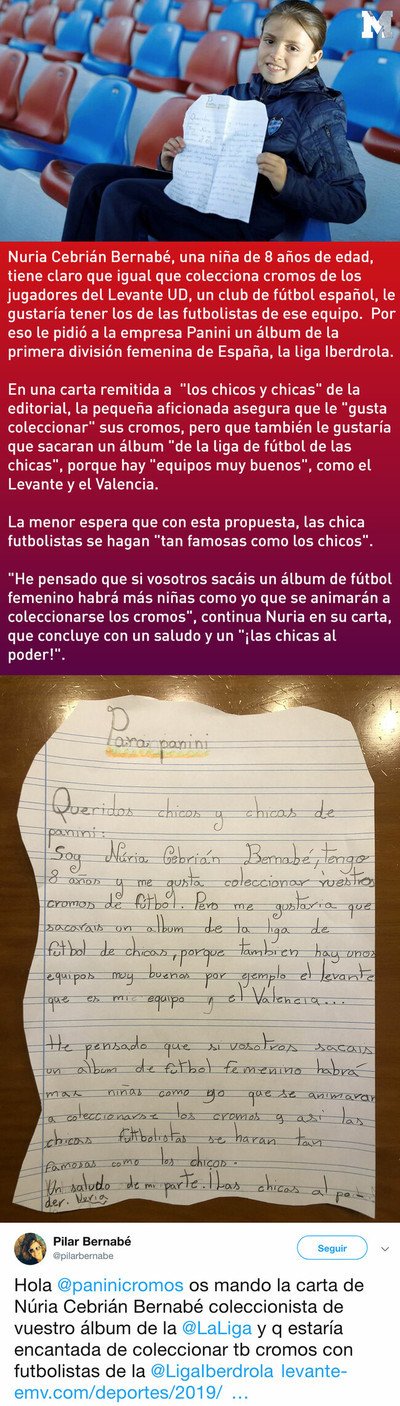 M
Para panini
Nuria Cebrián Bernabé, una niña de 8 años de edad,
tiene claro que igual que colecciona cromos de los
jugadores del Levante UD, un club de fútbol español, le
gustaría tener los de las futbolistas de ese equipo.  Por
eso le pidió a la empresa Panini un álbum de la
primera división femenina de España, la liga Iberdrola.
En una carta remitida a  "los chicos y chicas" de la
editorial, la pequeña aficionada asegura que le "gusta
coleccionar" sus cromos, pero que también le gustaría
que sacaran un álbum "de la liga de fútbol de las
chicas", porque hay "equipos muy buenos", como el
Levante y el Valencia.
La menor espera que con esta propuesta, las chica
futbolistas se hagan "tan famosas como los chicos".
"He pensado que si vosotros sacáis un álbum de fútbol
femenino habrá más niñas como yo que se animarán a
coleccionarse los cromos", continua Nuria en su carta,
que concluye con un saludo y un "¡las chicas al
poder!".
Para panini
Queridos chicos y chicas de
panini:
Soy Núria Cebrián Bernabé, tengo
8 años y me gusta coleccionar vuestros
cromos de fútbol. Pero me gustaria que
sacarais un album de la liga de
fútbol de chicas, porque tambien hay unos
equipos muy buenos por ejemplo el levante
que es mi equipo y el Valencia...
He pensado que si vosotros sacais
un álbum de fútbol femenino habrá
mas niñas como yo que se animaran
a coleccionarse los cromos y asi las
chicas futbolistas se haran tan
famosas como los chicos.
Un saludo de mi parte. ¡Las chicas al po-
der. Núria
Pilar Bernabé
@pilarbernabe
Seguir
Hola @paninicromos os mando la carta de
Núria Cebrián Bernabé coleccionista de
vuestro álbum de la @LaLiga y q estaría
encantada de coleccionar tb cromos con
futbolistas de la @LigaIberdrola levante-
emv.com/deportes/2019/ …